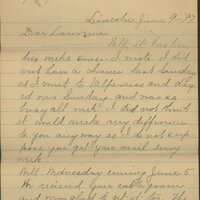 Lincoln, June 9 - '97
Dear Lawrence,
Well it has been
two weeks since I wrote. I did
not have a chance last Sunday
as I went to Valparaiso and stay
ed over Sunday and was so
busy all week I did not think
it would make any difference
to you any way as I do not sup-
pose you get your mail every
week.
Well Wednesday evening June 5
We received your
and was glad to get it for the